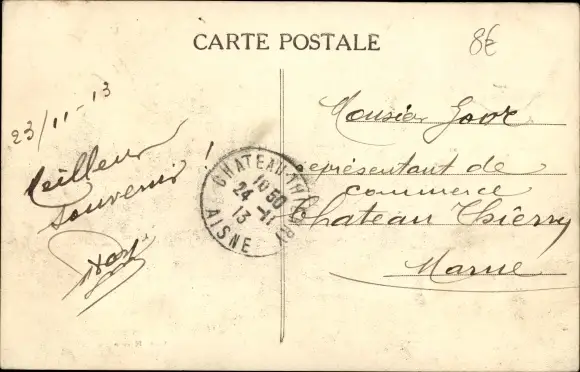 CARTE POSTALE
8€
23/11-13
Meilleur
souvenir !
CHATEAU-THIERRY
10 50
24 -11
13
AISNE
Monsieur
représentant de
commerce
Chateau Thierry
Marne